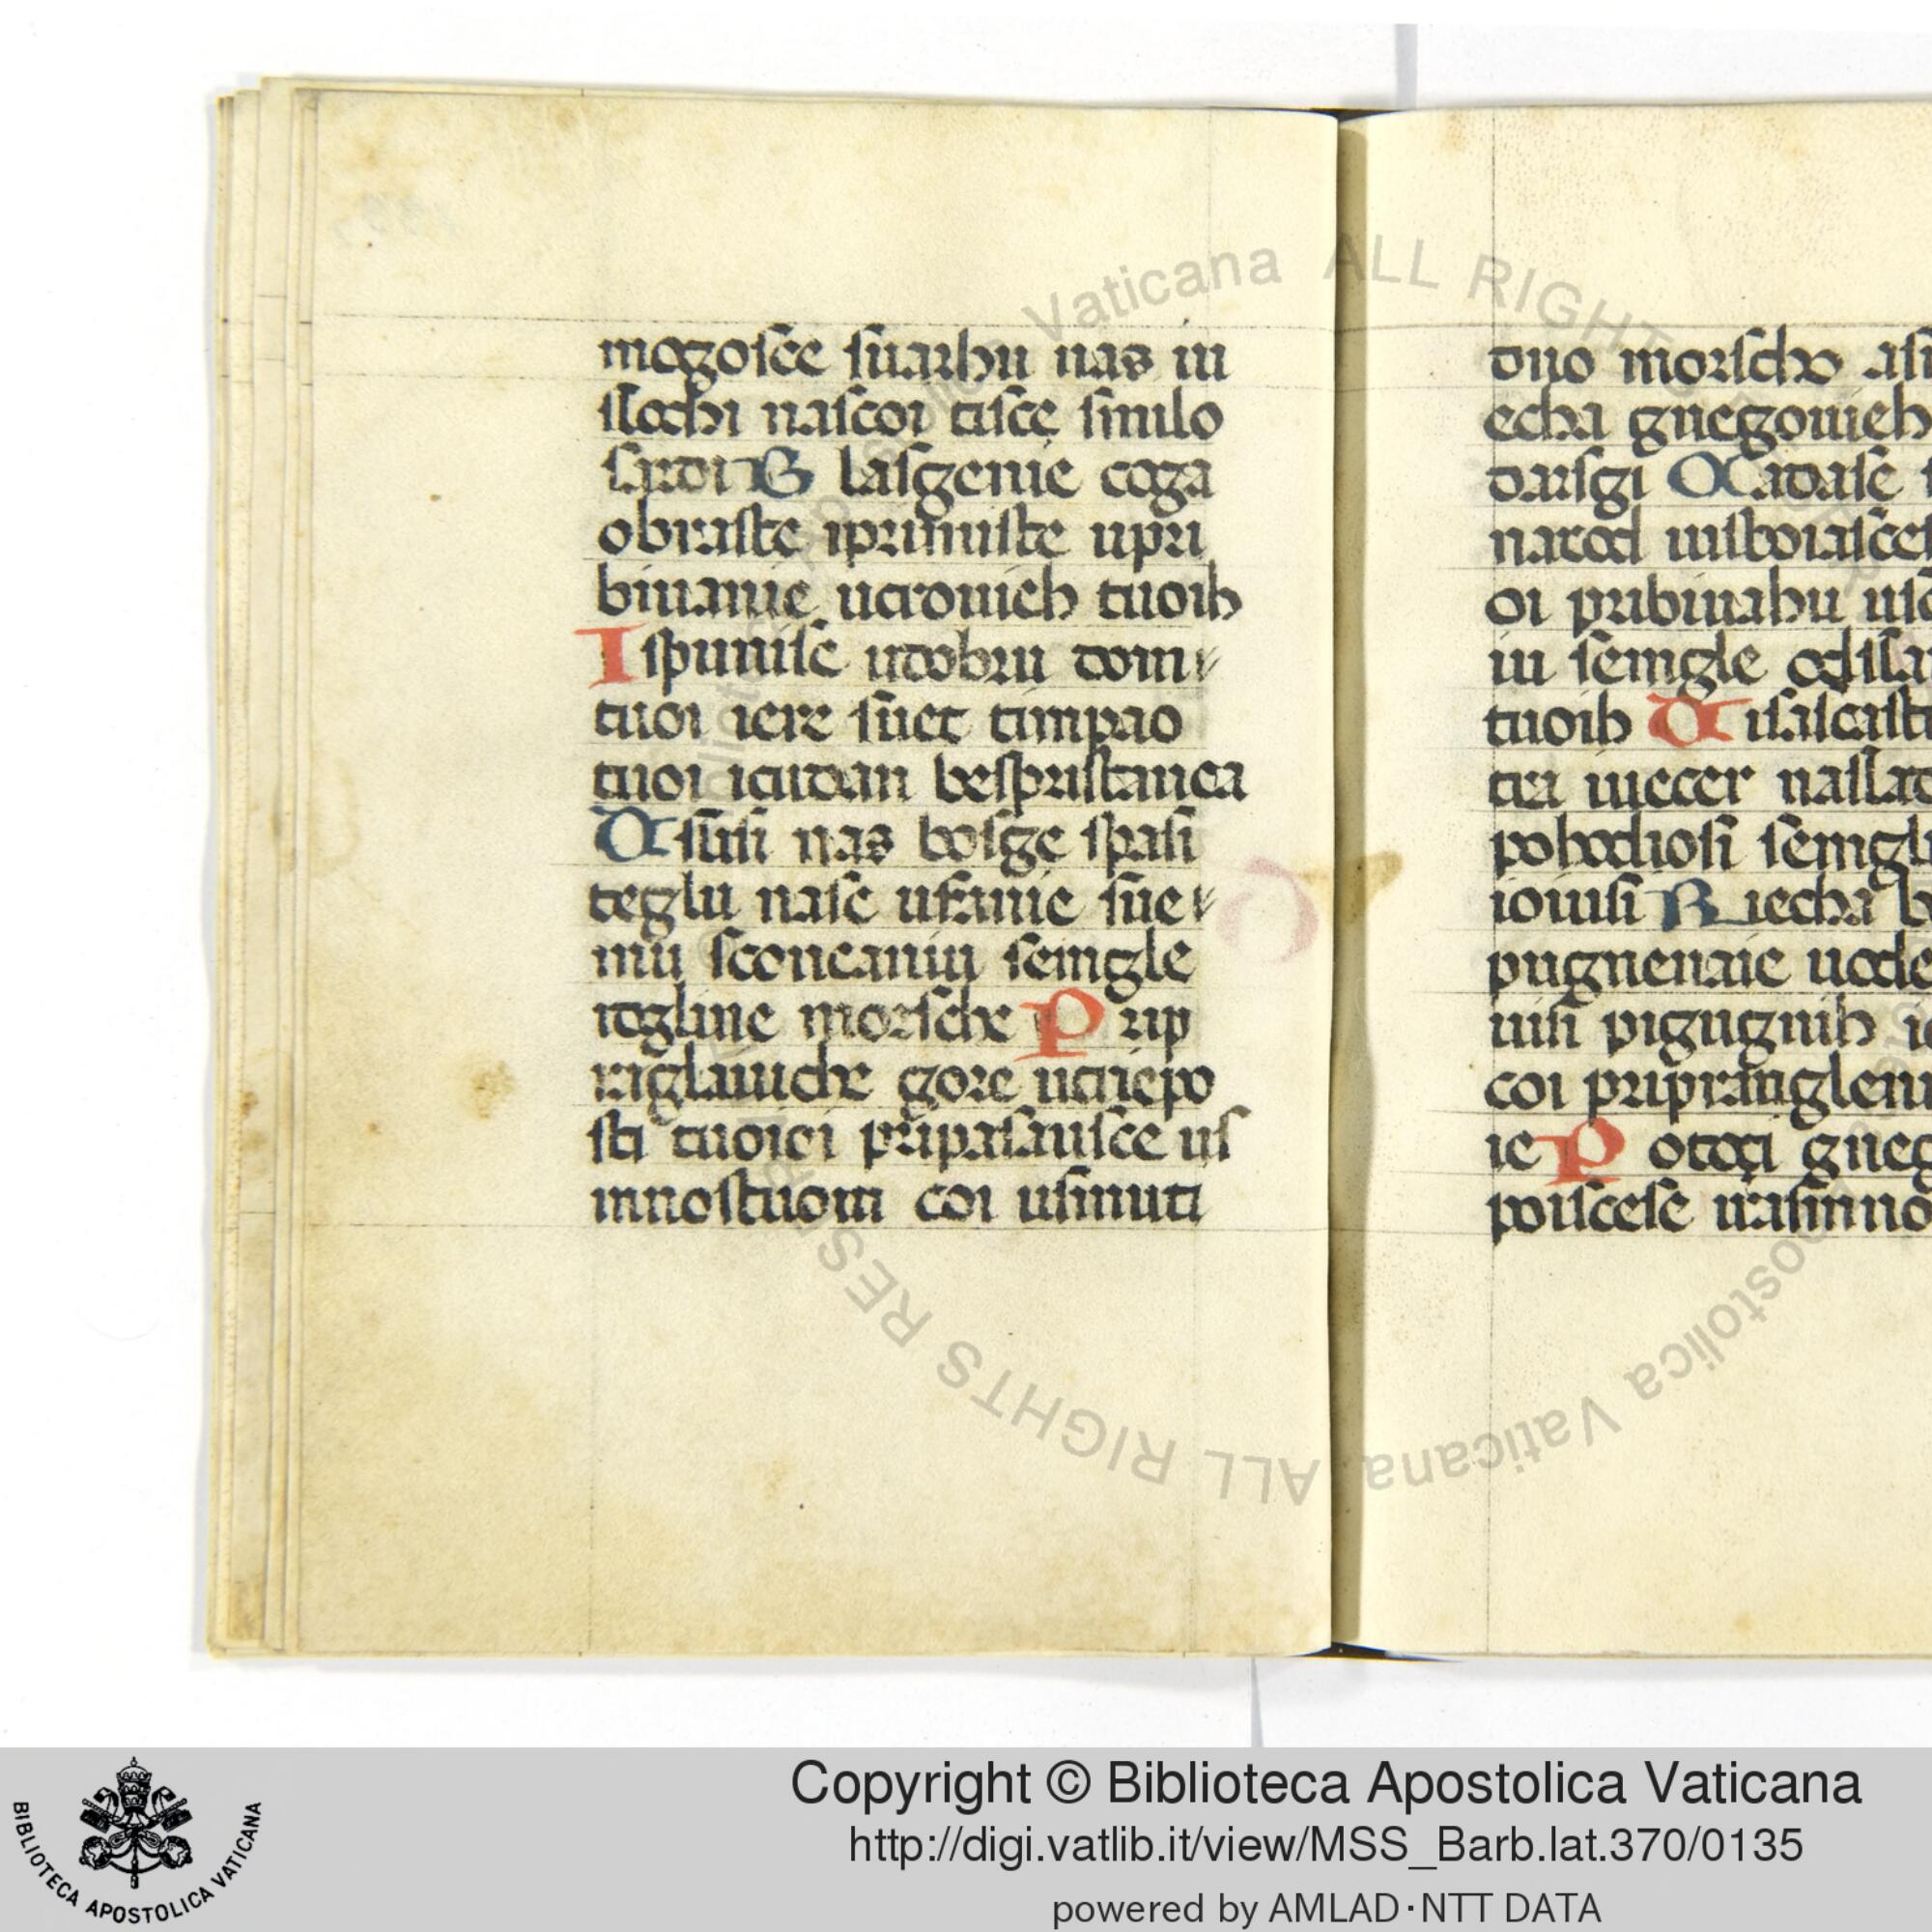 mogosce suarhu nas iu
slochi nascoi tisce similo
sardi B lasgenie coga
obraste iprimiste upri
biuanie utrouieh tuoih
Ispunise udobru dom
tuoi iere suet timpao
tuoi icudan bespristanea
Usilisi nas bosge spasi
teglu nase ufanie sue
mu sconcaniu semgle
idgline morsche Prip
riglauiche gore ucriepo
sti tuoiei pripasauisce us
innostuom coi usmuti
duo morscho asu
echa gnegouieh
darsgi Madase
narod uisboiasce
oi pribiuahu uis
iu semgle odisla
tuoih Uisiscasti
tra uiecer naslad
pohodiosi semgl
iouisi Riecha b
pugnenaie uode
uisi pigugnih ie
coi pripranglenu
ie Potoci gneg
poiscese urasinno
Vaticana ALL RIGHTS RESERVED
Biblioteca Apostolica Vaticana ALL RIGHTS RESE
BIBLIOTECA APOSTOLICA VATICANA
Copyright © Biblioteca Apostolica Vaticana
http://digi.vatlib.it/view/MSS_Barb.lat.370/0135
powered by AMLAD·NTT DATA